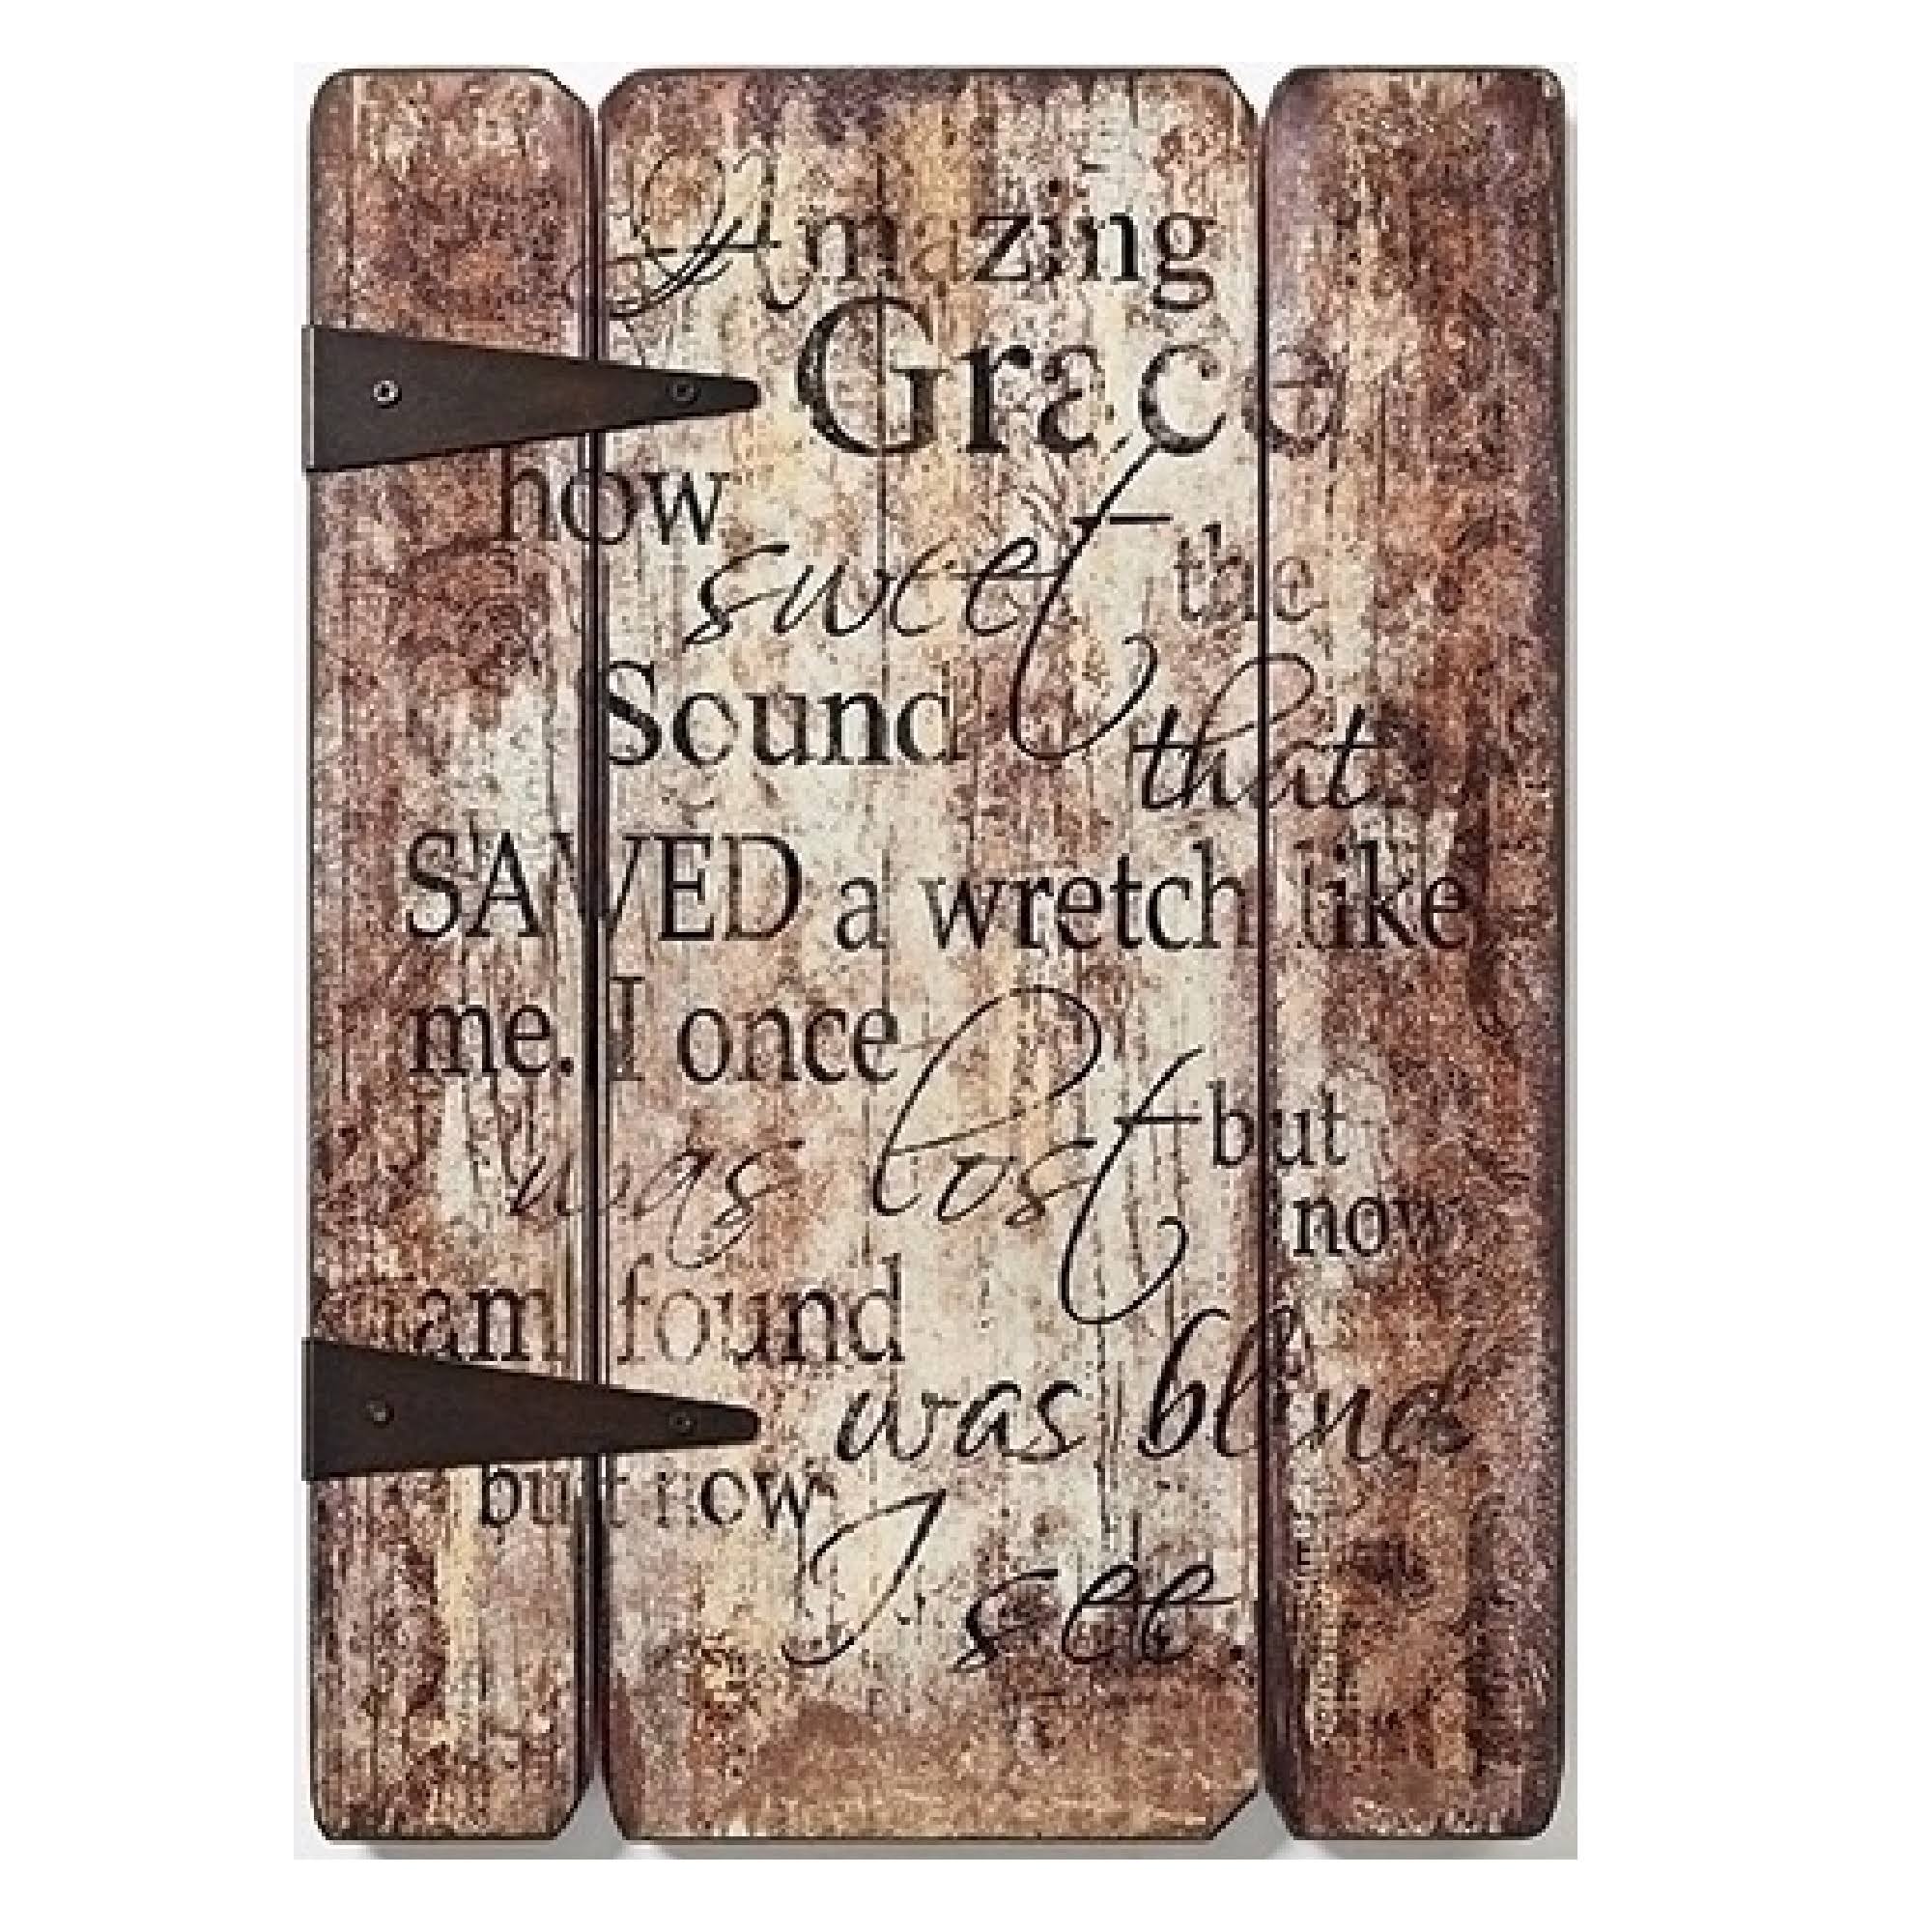 Amazing
Grace
how
sweet the
Sound
that
SAVED a wretch like
me. I once
was lost but
now
am found
was blind
but now
I see.